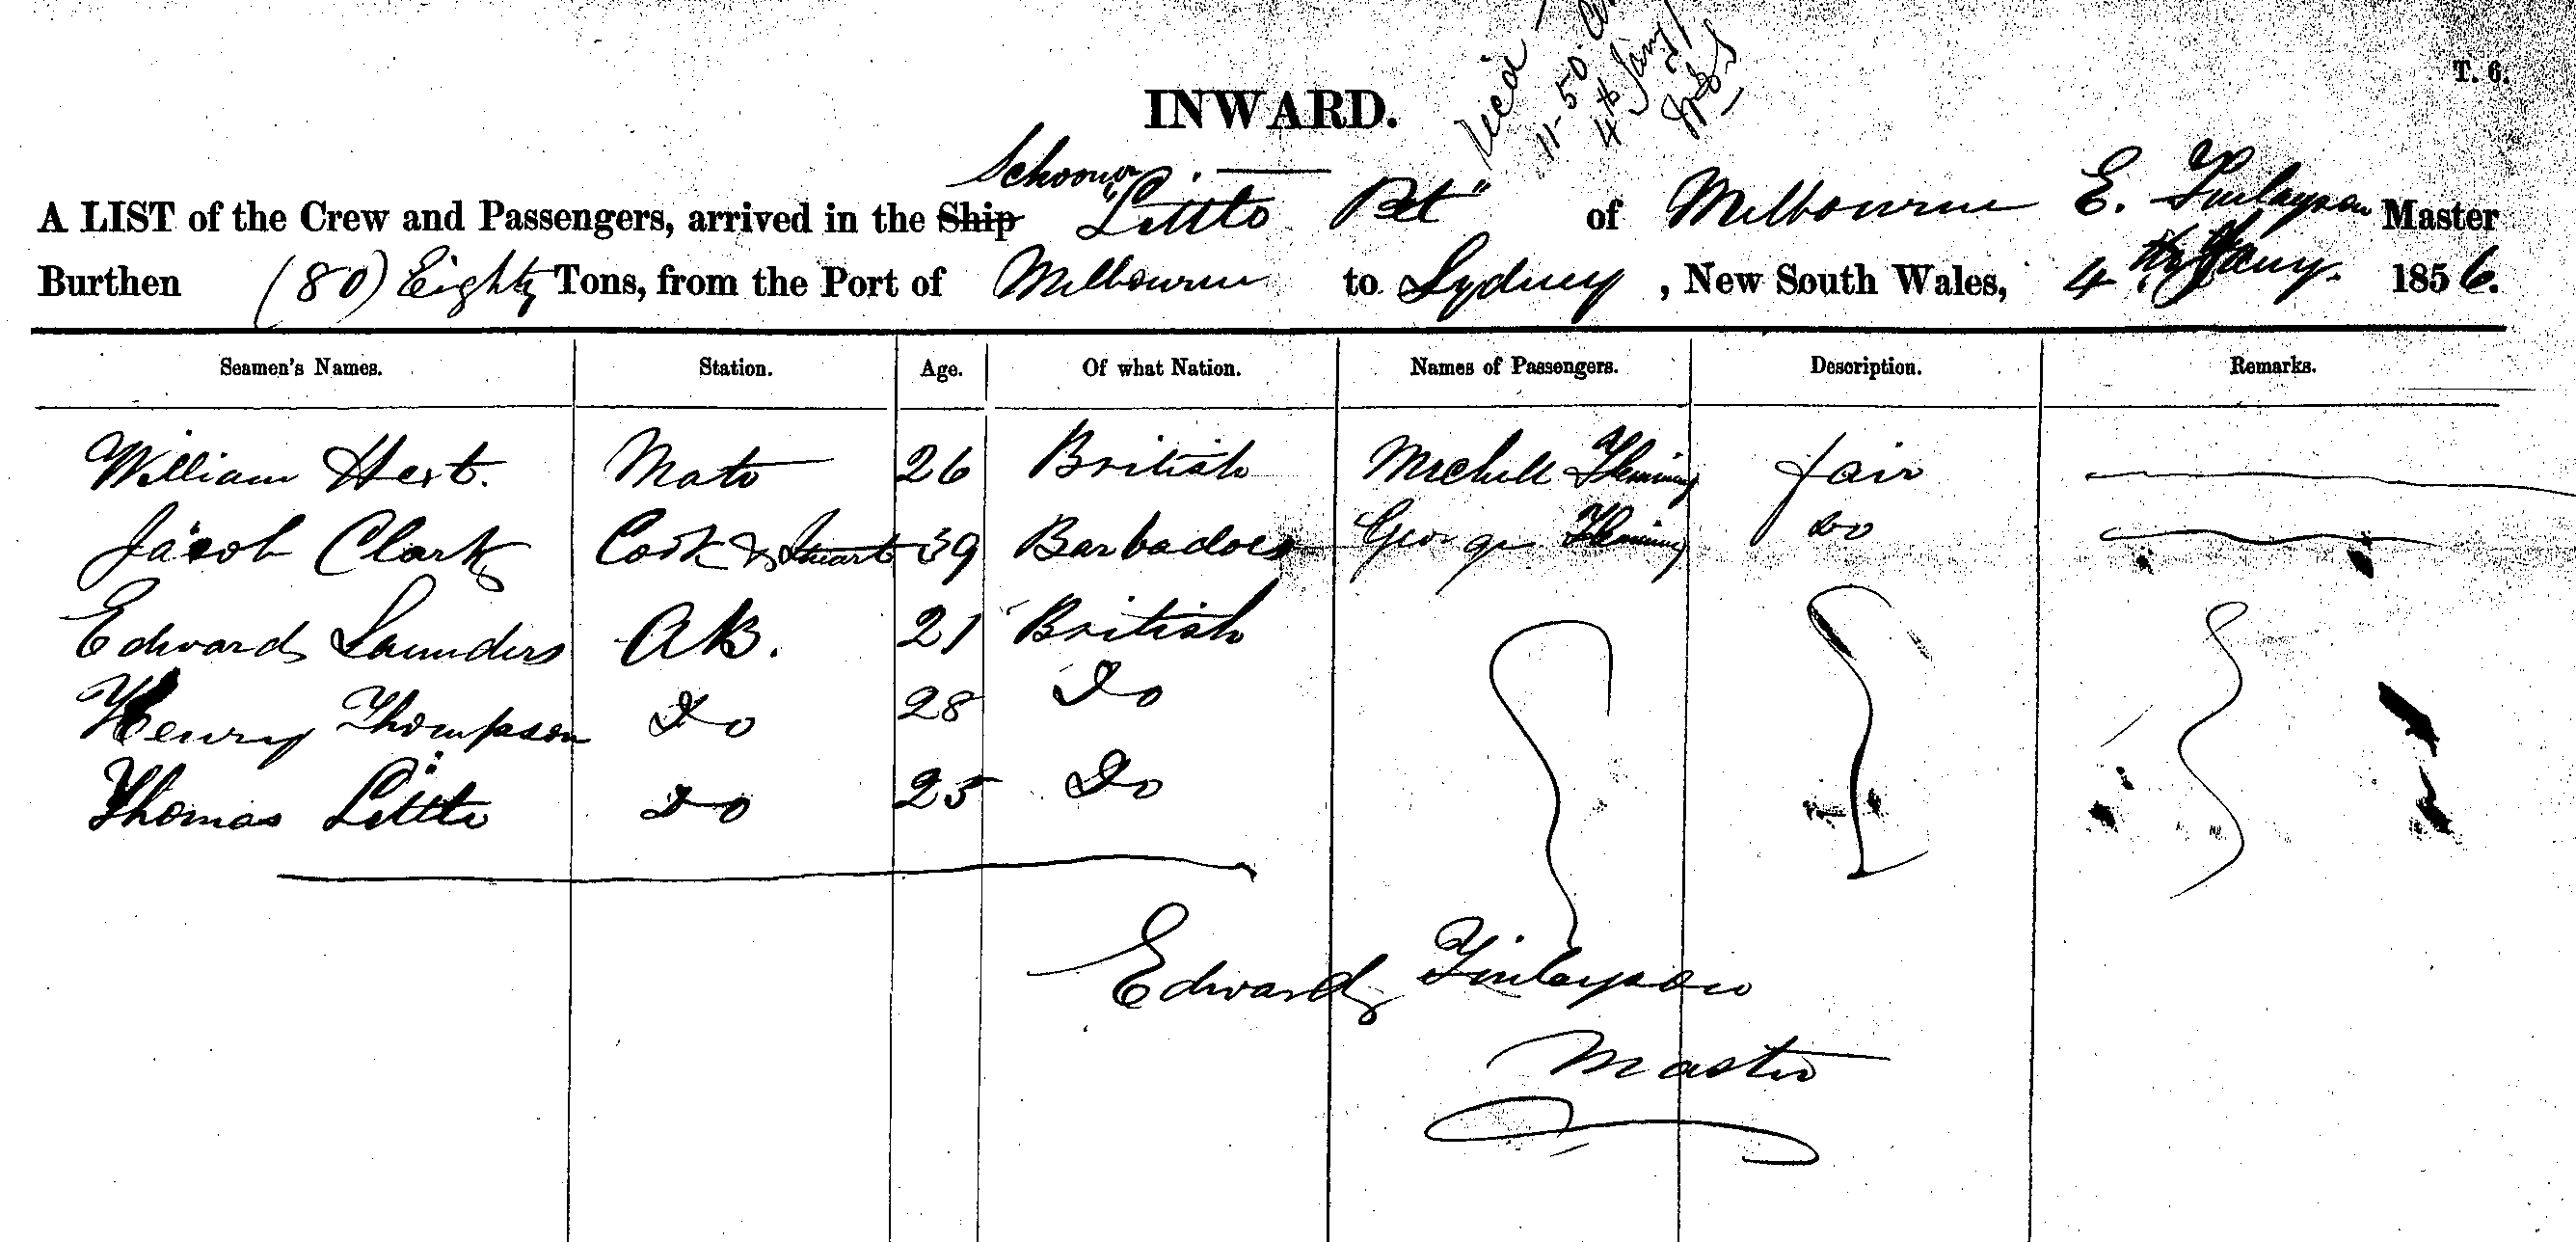 T. 6.
Rec'd
11-50
4th Jany
INWARD.
Schooner
A LIST of the Crew and Passengers, arrived in the Ship "Little Pet" of Melbourne E. Finlayson Master
Burthen (80) Eighty Tons, from the Port of Melbourne to Sydney, New South Wales, 4 Jany. 1856.
Seamen's Names. Station. Age. Of what Nation. Names of Passengers. Description. Remarks.
William Hext. Mate 26 British Fleming fair
Jacob Clark Cook & 39 Barbadoes George Fleming Do
Edward Saunders AB. 21 British
Henry Thompson Do 28 Do
Thomas Little Do 25 Do
Edward Finlayson
Master